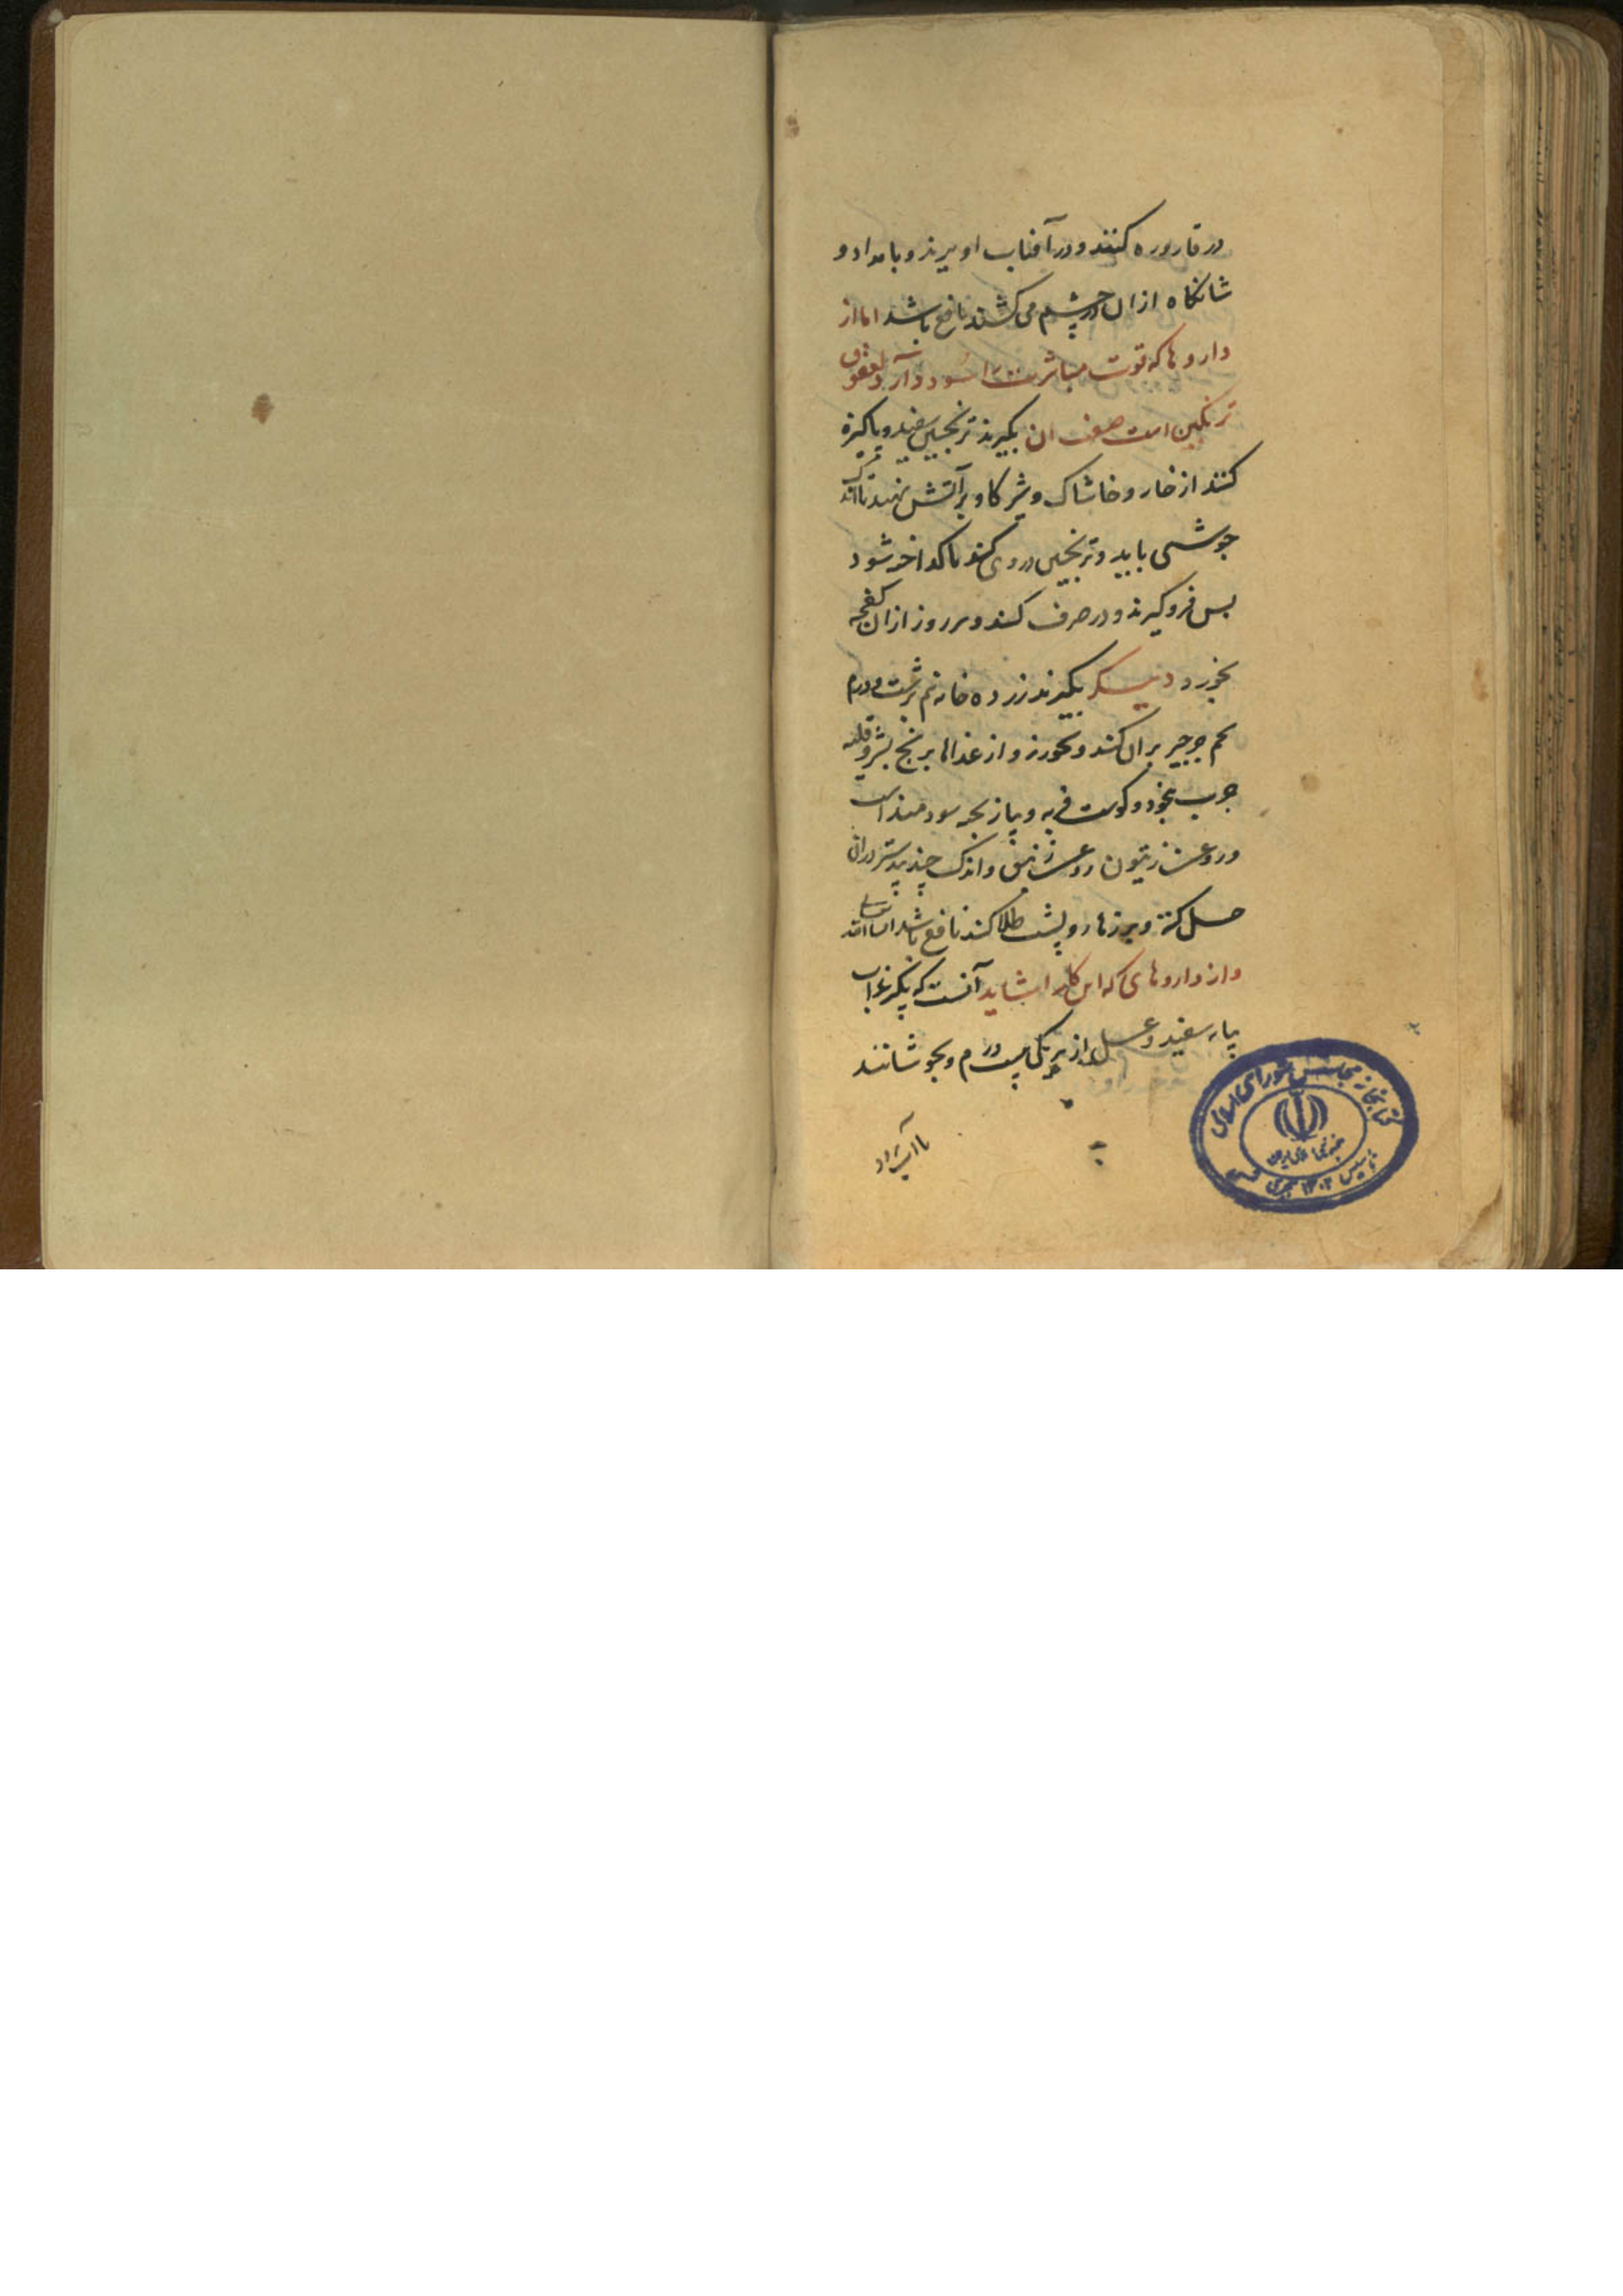 در قاروره کنند و در آفتاب اویرند و بامداد و
شانکاه ازان در چشم می کشند نافع باشد اما از
داروها که قوت مباشرت را سود دارد لعوق
ترنکبین است صفت ان بکیرند ترنجبین سفید و پاکیزه
کنند از خار و خاشاک و شیر کاو بر آتش نهند تا اندک
جوشی بیاید و ترنجبین در وی کنند تا کداخته شود
پس فرو کیرند و در ظرف کنند و هر روز ازان کفچه
بخورد دیکر بکیرند زرده خایه نیم برشت و درم
تخم جرجیر بران کنند و بخورند و از غذاها برنج بشیر و قلیه
چرب بنخود و کوشت فربه و پیاز پخته سودمند است
و روغن زیتون و روغن زنبق و اندک جندبیدستر دران
حل کنند و بر زهار و پشت طلا کنند نافع باشد ان شاء الله تعالی
و از داروهای که این کار را بشاید آنست که بکیرند اب
پیاز سفید و عسل از هر یکی بیست درم و بجوشانند
تا آب
کتابخانه مجلس شورای اسلامی
تاسیس ۱۳۰۲ هجری